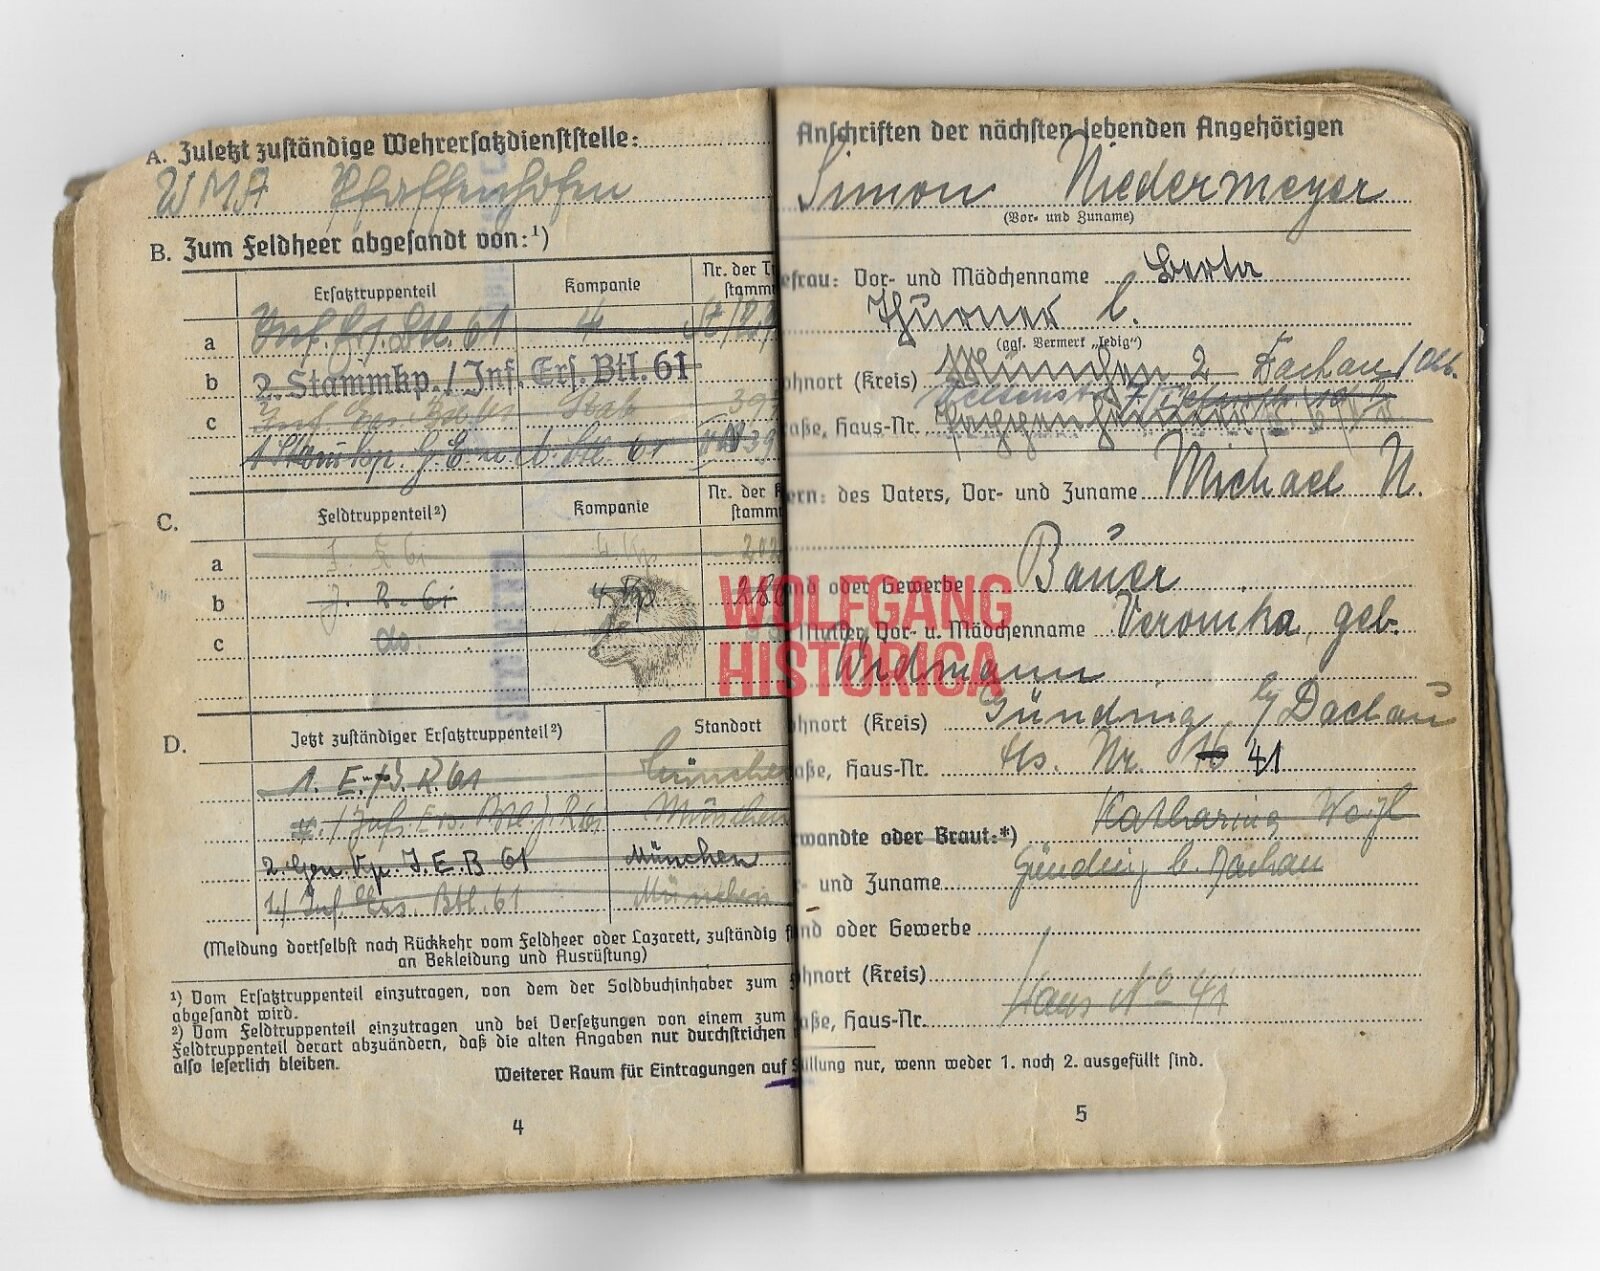 A. Zuletzt zuständige Wehrersatzdienststelle:
WMA Pfaffenhofen
B. Zum Feldheer abgesandt von:¹)
Ersatztruppenteil Kompanie Nr. der
stamm
a Inf. Ers. Btl. 61 4
b 2. Stammkp./Inf. Ers. Btl. 61
c
Btl. 61
C.
Feldtruppenteil²) Kompanie Nr. der
stamm
a J. R. 61 4. Kp
b J. R. 61 4. Kp
c do.
D. Jetzt zuständiger Ersatztruppenteil²) Standort
1. E. J. R. 61 München
München
2. Gen. Kp. J. E. B 61 München
Inf. Ers. Btl. 61 München
(Meldung dortselbst nach Rückkehr vom Feldheer oder Lazarett, zuständig
an Bekleidung und Ausrüstung)
¹) Vom Ersatztruppenteil einzutragen, von dem der Soldbuchinhaber zum
abgesandt wird.
²) Vom Feldtruppenteil einzutragen und bei Versetzungen von einem zum
Feldtruppenteil derart abzuändern, daß die alten Angaben nur durchstrichen
also leserlich bleiben.
Weiterer Raum für Eintragungen auf
4
Anschriften der nächsten lebenden Angehörigen
Simon Niedermeyer
(Vor- und Zuname)
efrau: Vor- und Mädchenname Berta
Thurner l.
(ggf. Vermerk „ledig")
ohnort (Kreis) München 2 Dachau/Obb.
raße, Haus-Nr.
ern: des Vaters, Vor- und Zuname Michael N.
nd oder Gewerbe Bauer
Mutter, Vor- u. Mädchenname Veronika, geb.
Widmann
ohnort (Kreis) Günding b/Dachau
aße, Haus-Nr. Hs. Nr. 16 41
Katharina Weigl
wandte oder Braut:*)
- und Zuname Günding b. Dachau
nd oder Gewerbe
ohnort (Kreis)
Haus No 41
aße, Haus-Nr.
üllung nur, wenn weder 1. noch 2. ausgefüllt sind.
5
WOLFGANG
HISTORICA